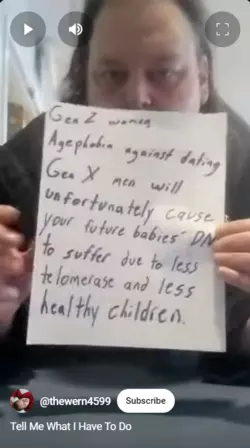 Gen Z women,
Agephobia against dating
Gen X men will
unfortunately cause
your future babies' DN
to suffer due to less
telomerase and less
healthy children.
@thewern4599
Subscribe
Tell Me What I Have To Do